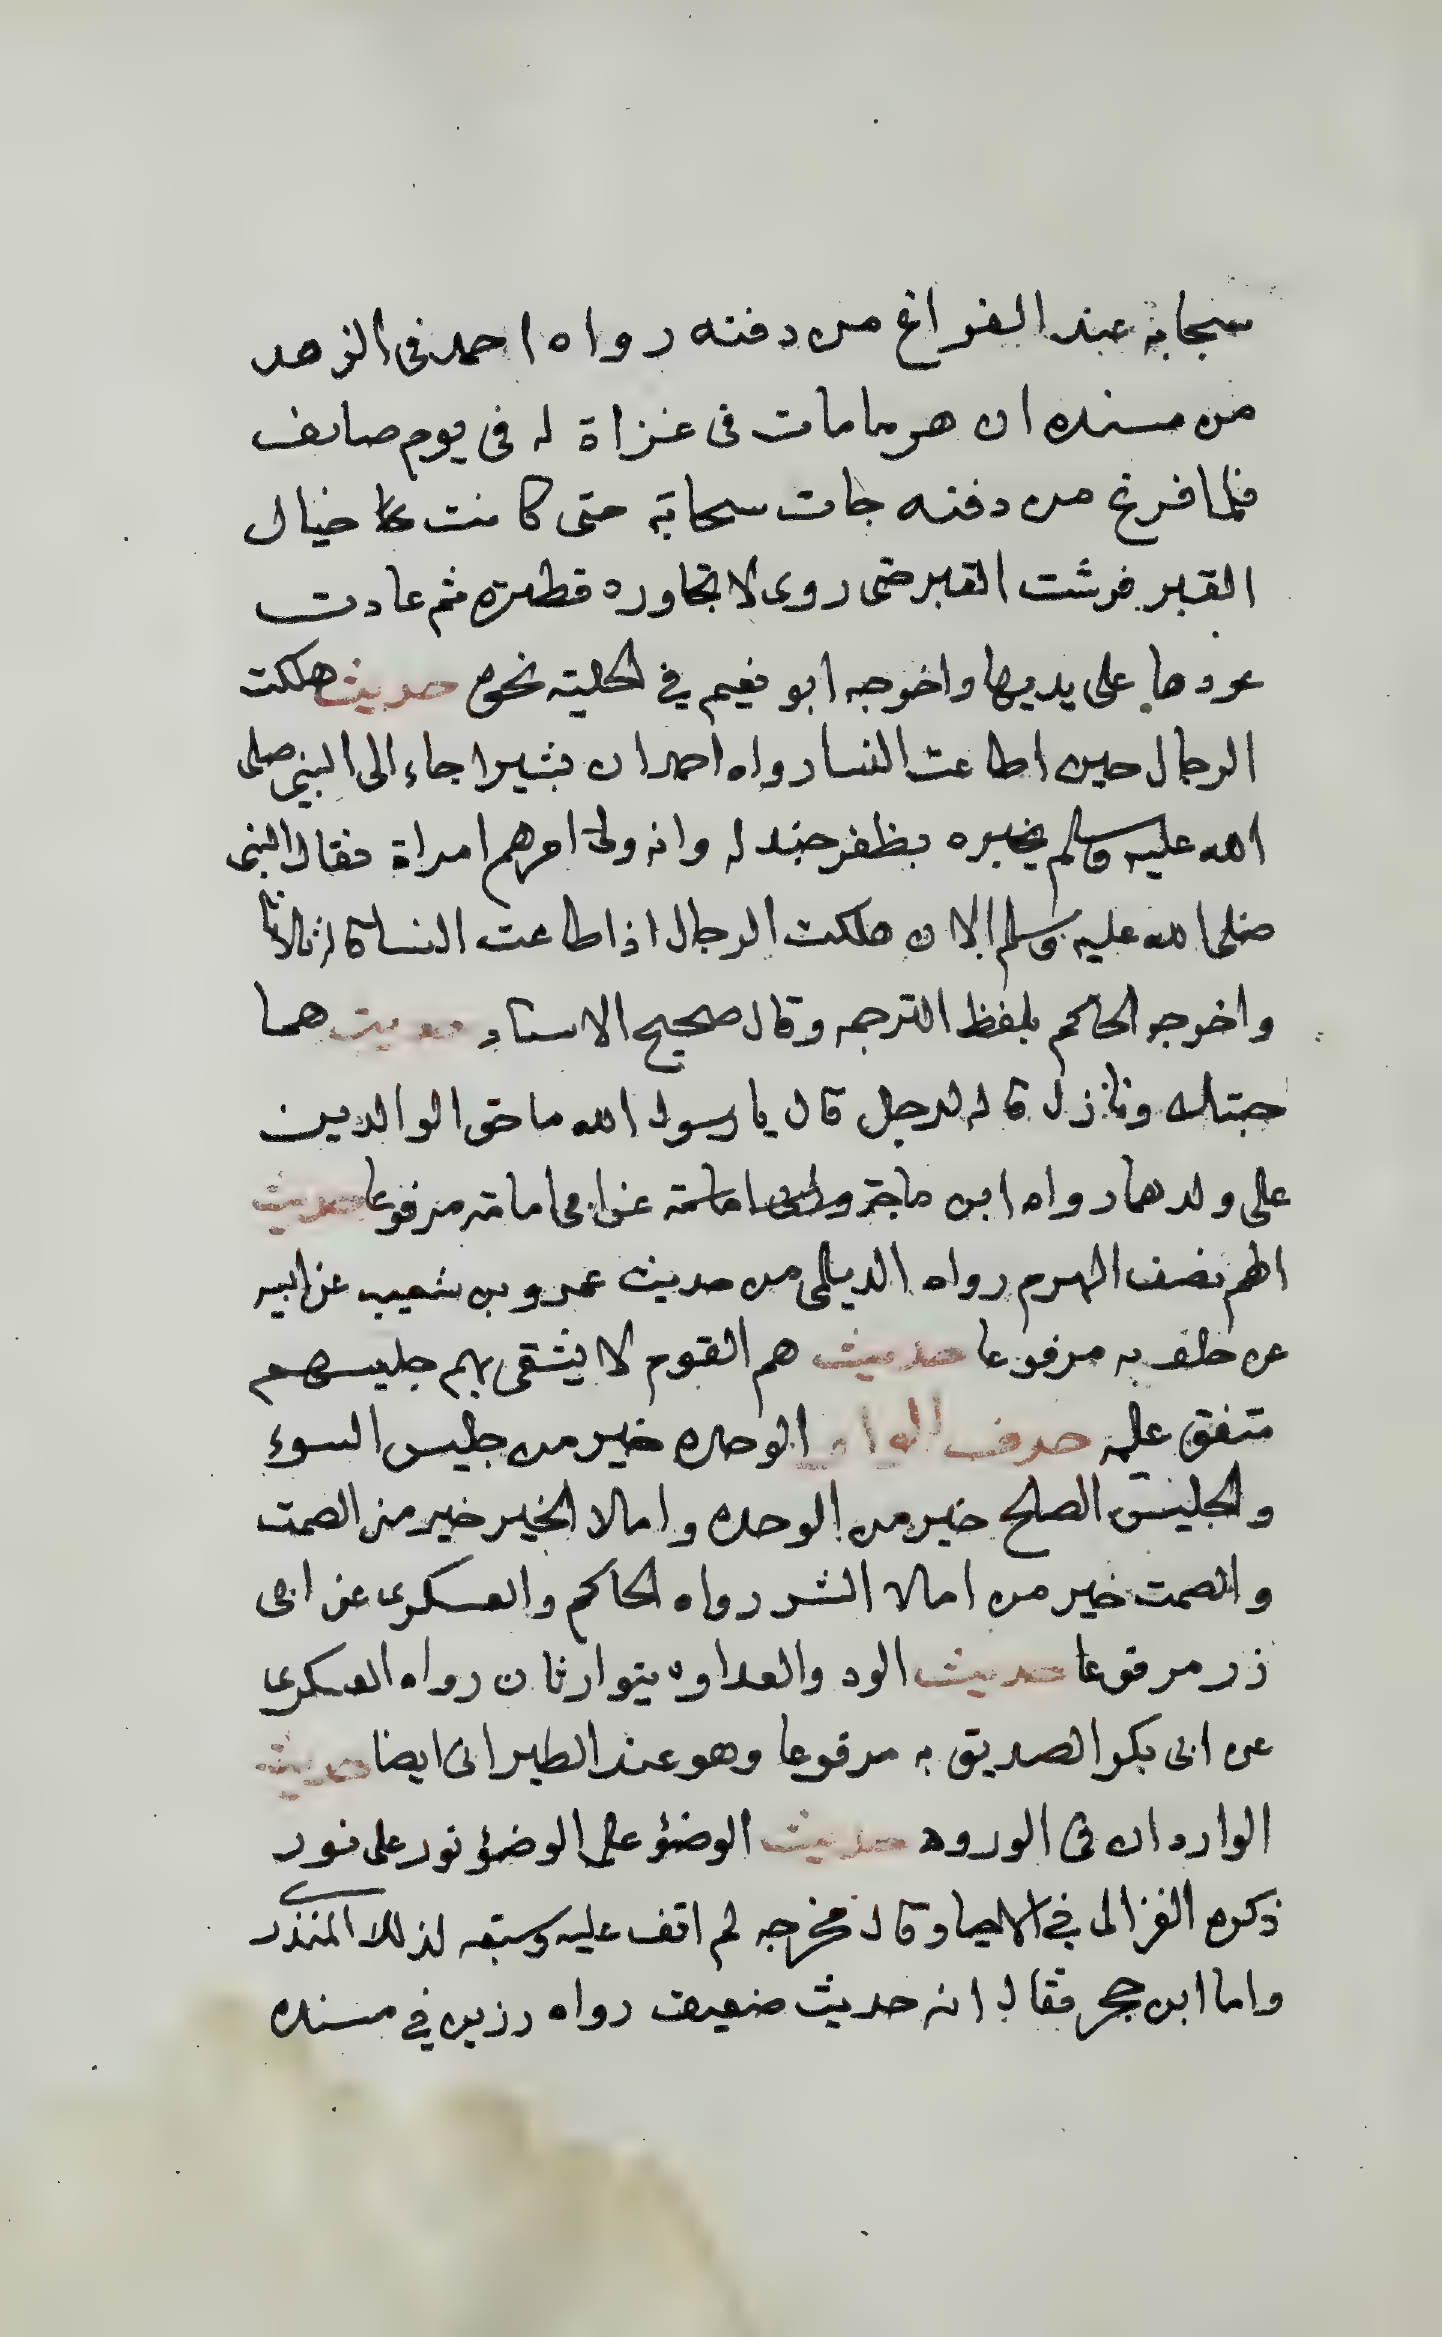 سحابة عند الفراغ من دفنه رواه احمد في الزهد
من مسنده ان هرما مات في غزاة له في يوم صايف
فلما فرغ من دفنه جات سحابة حتى كانت خيال
القبر فرشت القبر حتى روى لا تجاوره قطره ثم عادت
عودها على يديها واخرجه ابو نعيم في الحلية نحوه حديث هلكت
الرجال حين اطاعت النسا رواه احمد ان بشيرا جاء الى النبي صلى
الله عليه وسلم يخبره بظفر جند له وانه ولى امرهم امراة فقال النبي
صلى الله عليه وسلم الان هلكت الرجال اذا طاعت النسا قاله ثلاثا
واخرجه الحاكم بلفظ الترجمه وقال صحيح الاسناد حديث هما
جنتك ونارك قاله لرجل قال يا رسول الله ما حق الوالدين
على ولدهما رواه ابن ماجة عن ابي امامة مرفوعا حديث
الهم نصف الهرم رواه الديلمي من حديث عمرو بن شعيب عن ابيه
عن به مرفوعا حديث هم القوم لا يشقى بهم جليسهم
متفق عليه حرف الواو الوحده خير من جليس السوء
والجليس الصلح خير من الوحده واملا الخير خير من الصمت
والصمت خير من املا الشر رواه الحاكم والعسكرى عن ابي
ذر مرفوعا حديث الود والعداوه يتوارثان رواه العسكرى
عن ابي بكر الصديق به مرفوعا وهو عند الطبراني ايضا حديث
الواردان في الوروه حديث الوضؤ على الوضؤ نور على نور
ذكره الغزالى في الاحيا وقال مخرجه لم اقف عليه وسبقه لذلك المنذرى
واما ابن حجر فقال انه حديث ضعيف رواه رزين في مسنده